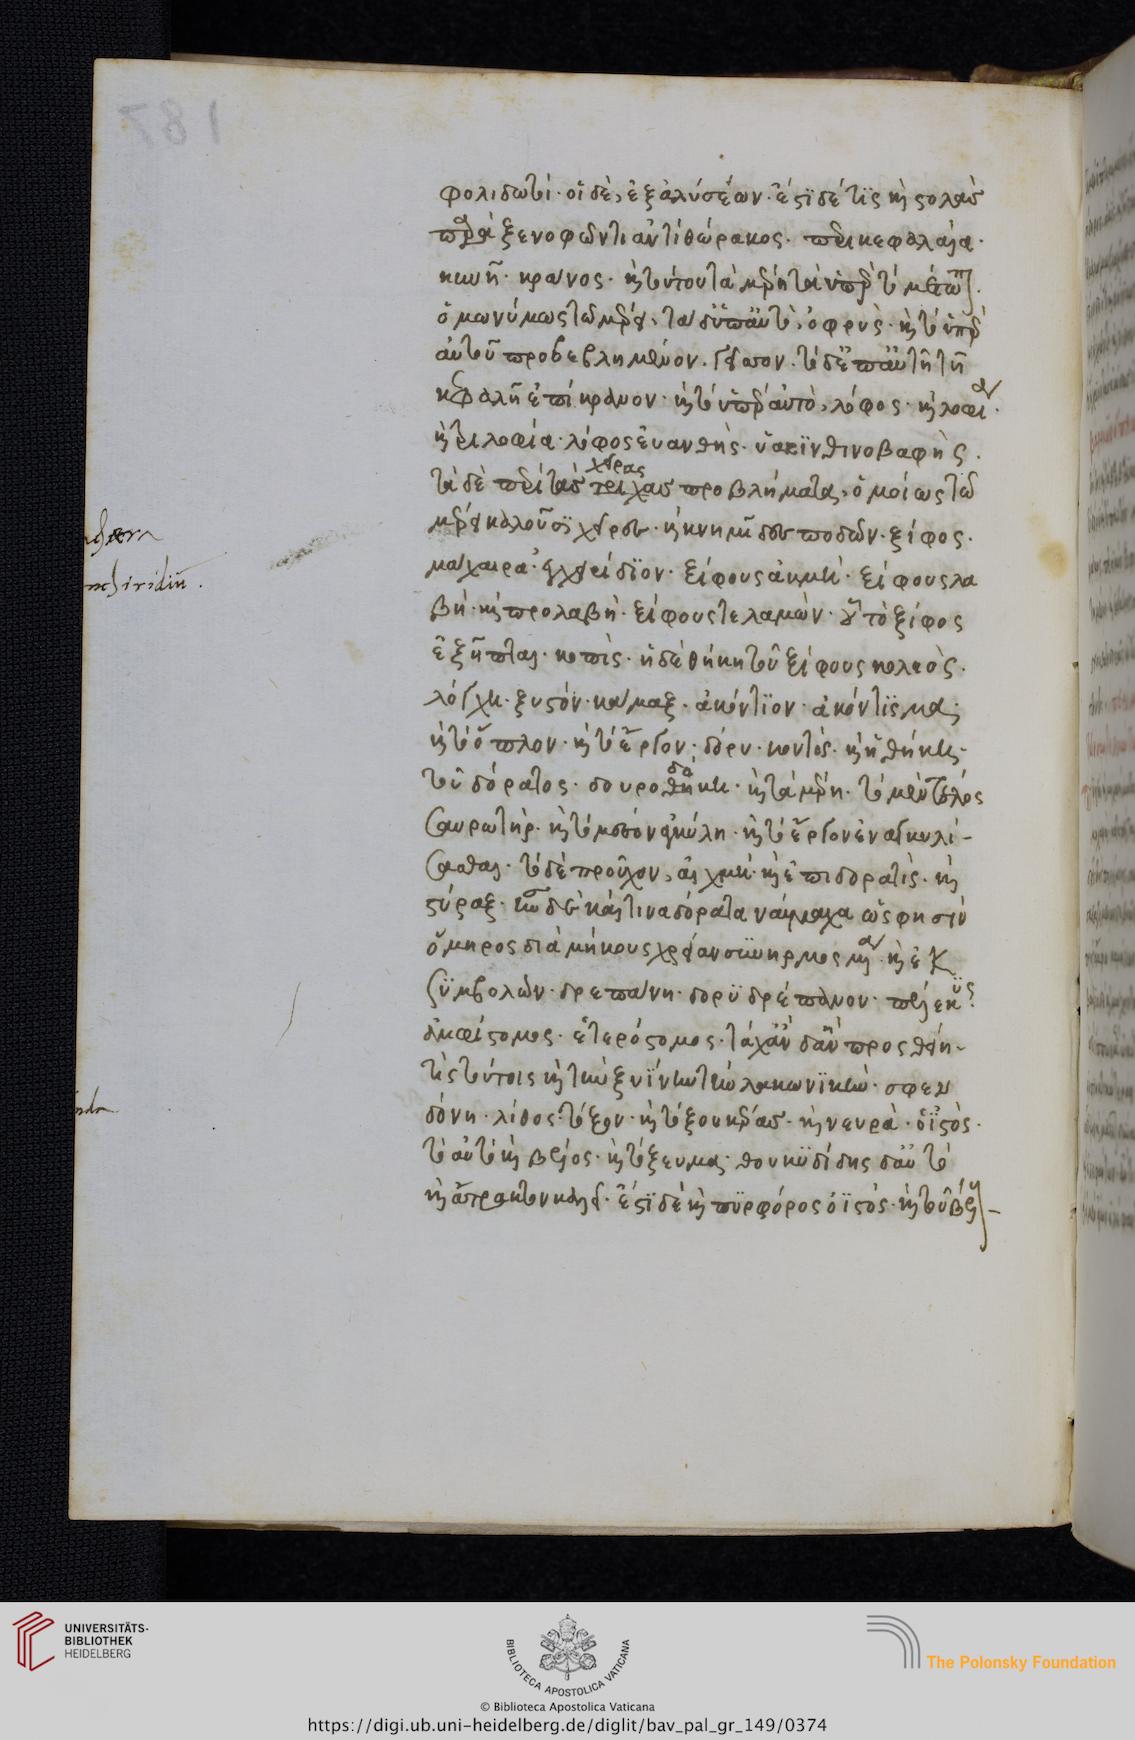 187
φολιδωτοί· οἱ δὲ, ἐξ ἁλύσεων· ἔστι δέ τις καὶ στολὰς
παρὰ ξενοφῶντι ἀντὶ θώρακος· περικεφαλαία·
κυνῆ· κράνος· καὶ τούτου τὰ μέρη τὰ ὑπὲρ τὸ μέτωπον·
ὁμωνύμως τῷ μέρει, τὰ δ' ὑπ' αὐτὸ, ὀφρύς· καὶ τὸ ὑπὲρ
αὐτοῦ προβεβλημένον· γεῖσον· τὸ δ' ἐπ' αὐτῇ τῇ
κεφαλῇ ἐπίκρανον· καὶ τὸ ὑπὲρ αὐτὸ, λόφος· καὶ λοφιά·
καὶ τριλοφία· λόφος εὐανθής· ὑακινθινοβαφής·
χεῖρας
τὰ δὲ περὶ τὰς τρίχας προβλήματα, ὁμοίως τῷ
μέρει καλοῦσι χεῖρας· καὶ κνημῖδας ποδῶν· ξίφος·
μάχαιρα· ἐγχειρίδιον· ξίφους ἀκμή· ξίφους λα
βή· καὶ προλαβή· ξίφους τελαμών· οὗ τὸ ξίφος
ἐξῆπται· κοπίς· ἡ δὲ θήκη τοῦ ξίφους κολεός·
λόγχη· ξυστόν· κάμαξ· ἀκόντιον· ἀκόντισμα·
καὶ τὸ ὅπλον· καὶ τὸ ἔργον· δόρυ· κοντός· καὶ ἡ θήκη·
τοῦ δόρατος· δουροδόκη· καὶ τὰ μέρη· τὸ μὲν τέλος
σαυρωτήρ· καὶ τὸ μέσον ἀγκύλη· καὶ τὸ ἔργον ἐναγκυλί-
σασθαι· τὸ δὲ προὖχον, αἰχμή· καὶ ἐπιδορατίς· καὶ
στύραξ· ἦν δὲ καί τινα δόρατα ναύμαχα ὥς φησιν
ὅμηρος διὰ μήκους χρείαν συνηρμοσμένα· καὶ ἐκ
συμβολῶν· δρεπάνη· δορυδρέπανον· πέλεκυς·
ἀμφίστομος· ἑτερόστομος· τάχα ἂν δ' ἂν προσθείη
τις τούτοις καὶ τὴν ξυΐνην τὴν λακωνικήν· σφεν
δόνη· λίθος· τόξον· καὶ τόξου κέρας· καὶ νευρά· ὀϊστός·
τὸ αὐτὸ καὶ βέλος· καὶ τόξευμα· θουκυδίδης δ' αὐτὸ
καὶ ἄτρακτον καλεῖ· ἔστι δὲ καὶ πυρφόρος ὀϊστός· καὶ τοῦ βέλους
UNIVERSITÄTS-
BIBLIOTHEK
HEIDELBERG
BIBLIOTECA APOSTOLICA VATICANA
The Polonsky Foundation
© Biblioteca Apostolica Vaticana
https://digi.ub.uni-heidelberg.de/diglit/bav_pal_gr_149/0374